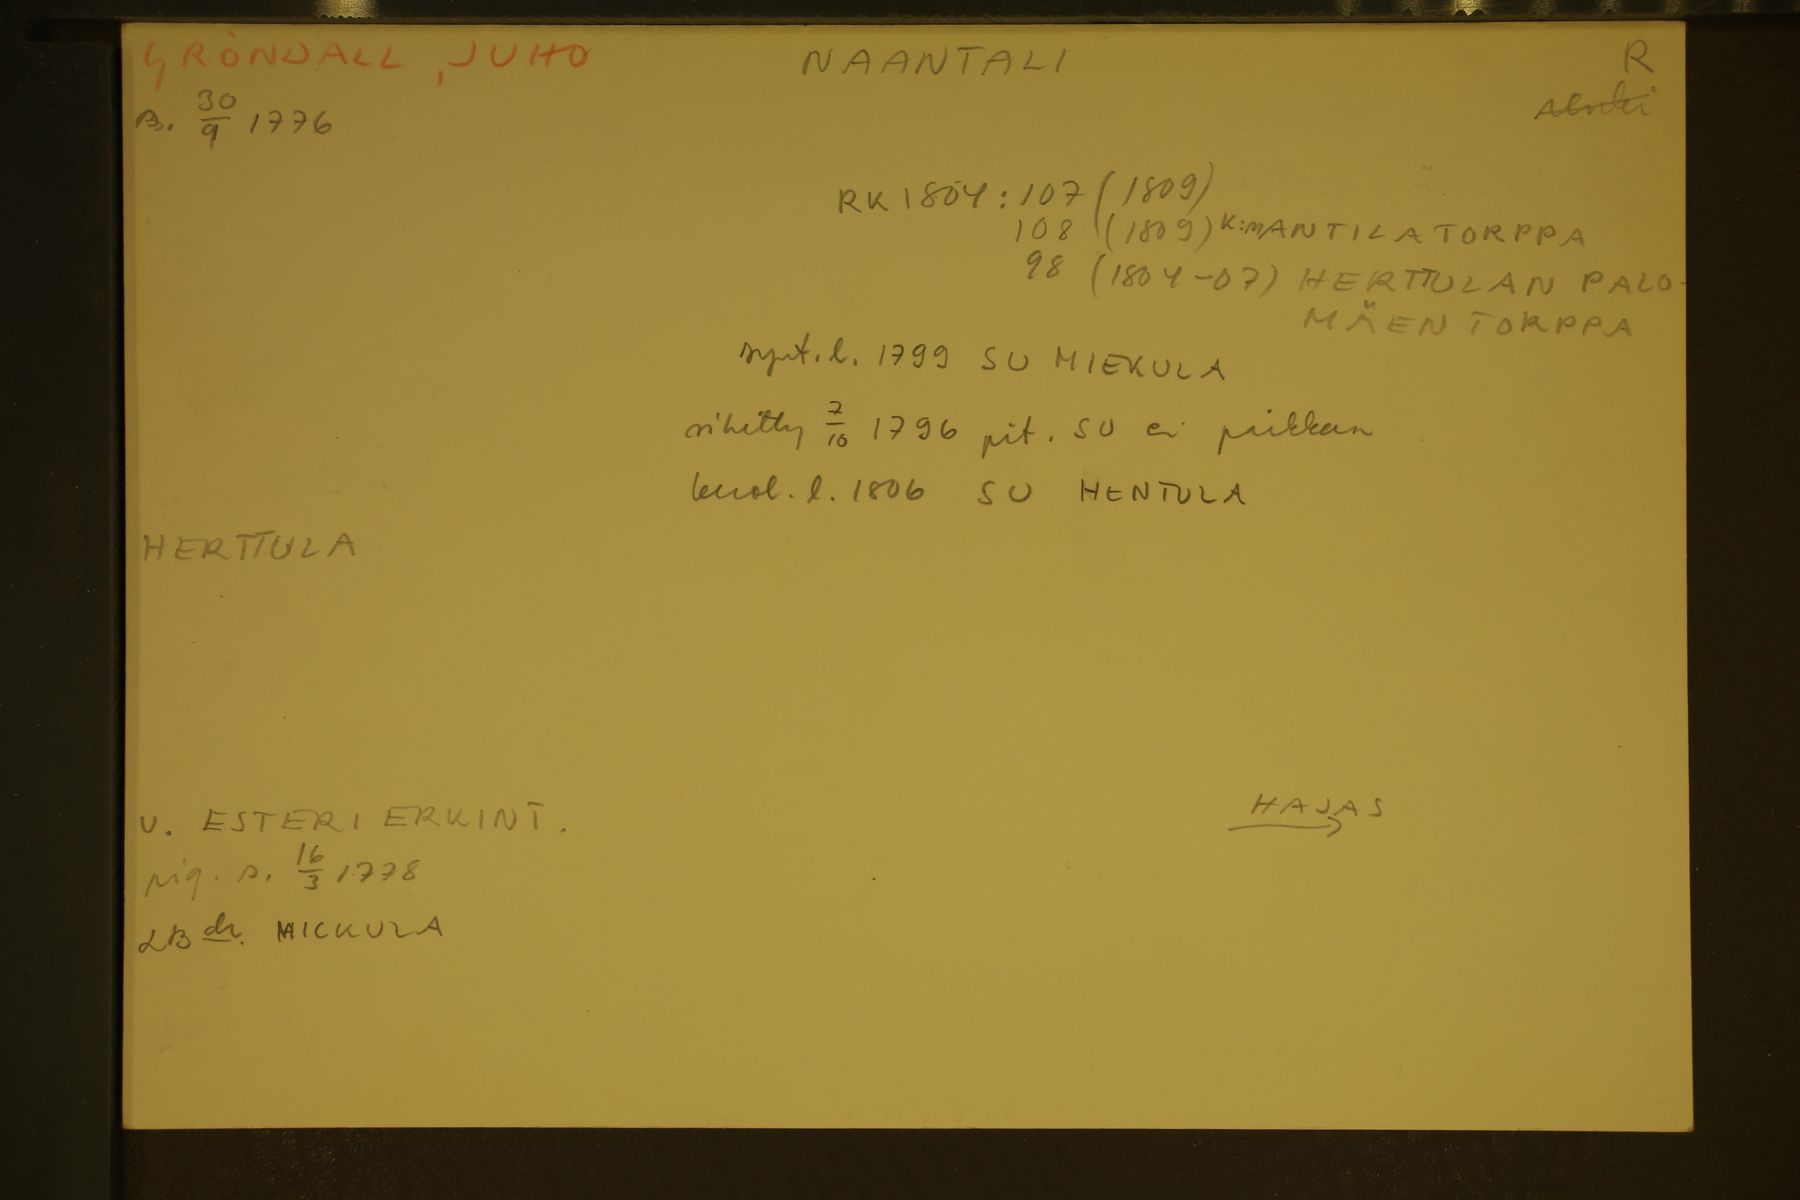 GRÖNDALL, JUHO NAANTALI R
s. 30/9 1776
RK 1804: 107 (1809)
108 (1809) K:MANTILA TORPPA
98 (1804-07) HERTTULAN PALO-
MÄEN TORPPA
synt. l. 1799 SU MIEKULA
vihitty 7/10 1796 pit. SU ei paikkaa
kuol. l. 1806 SU HENTULA
HERTTULA
HAJAS
v. ESTERI ERKINT.
piq. s. 16/3 1778
LB dr. MICKULA